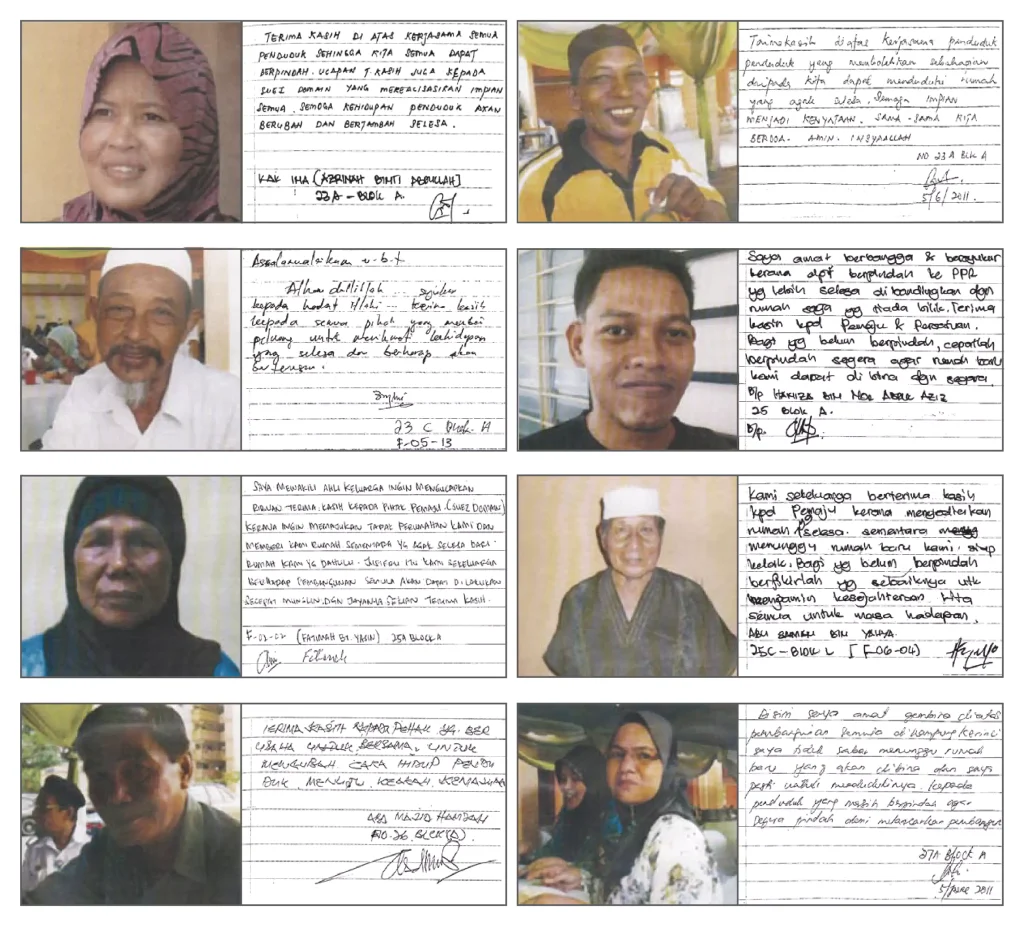 TERIMA KASIH DI ATAS KERJASAMA SEMUA
PENDUDUK SEHINGGA KITA SEMUA DAPAT
BERPINDAH. UCAPAN T. KASIH JUGA KEPADA
DOMAIN YANG MEREALISASIKAN IMPIAN
SEMUA. SEMOGA KEHIDUPAN PENDUDUK AKAN
BERUBAH DAN BERTAMBAH SELESA.
KAK INA (AZRINAH BINTI ABDULLAH)
23A - BLOK A.
Terimakasih diatas kerjasama penduduk
penduduk yang membolehkan sebahagian
daripada kita dapat menduduki rumah
yang agak selesa. Semoga IMPIAN
MENJADI KENYATAAN. SAMA-SAMA KITA
BERDOA. AMIN. INSYAALLAH
NO 23 A BLK A
5/6/2011.
Assalamualaikum w.b.t
Alhamdulillah syukur
kepada hadrat Illahi terima kasih
kepada semua pihak yang memberi
peluang untuk menikmati kehidupan
yang selesa dan berharap akan
23 C Blok A
F-05-13
Saya amat berbangga & bersyukur
kerana dpt berpindah ke PPR
yg lebih selesa dibandingkan dgn
rumah saya yg tiada bilik. Terima
kasih kpd Pemaju & Persatuan.
Bagi yg belum berpindah, cepatlah
berpindah segera agar rumah baru
kami dapat di bina dgn segera.
B/p HAMIZA BIN NOR ABDUL AZIZ
25 BLOK A.
B/p.
SAYA MEWAKILI AHLI KELUARGA INGIN MENGUCAPKAN
RIBUAN TERIMA KASIH KEPADA PIHAK PEMAJU (SUEZ DOMAIN)
KERANA INGIN MEMAJUKAN TAPAK PERUMAHAN KAMI DAN
MEMBERI KAMI RUMAH SEMENTARA YG AGAK SELESA DARI
RUMAH KAMI YG DAHULU. KAMI SEKELUARGA
BERHARAP PEMBANGUNAN SEMULA AKAN DAPAT DILAKUKAN
SECEPAT MUNGKIN. DGN JAYANYA SEKIAN TERIMA KASIH.
F-02-02 (FATIMAH BT. YASIN) 25A BLOCK A
Fatimah
Kami sekeluarga berterima kasih
kpd Pemaju kerana menyediakan
rumah yg selesa. sementara
menunggu rumah baru kami siap
kelak. Bagi yg belum berpindah
berfikirlah yg sebaiknya utk
menjamin kesejahteraan kita
semua untuk masa hadapan.
ABU SAMAH BIN YAHYA.
25C - BLOK L [F-06-04)
TERIMA KASIH KEPADA PEHAK YG BER
USAHA UNTUK BERSAMA, UNTUK
MENGUBAH CARA HIDUP PENDU
DUK, MENUJU KEARAH KEMAJUAN
ABD MAJID HAMZAH
NO. 26 BLOK (A)
Disini saya amat gembira diatas
pembangunan semula di kampung Kerinci
saya tidak sabar menunggu rumah
baru yang akan dibina dan saya
pasti untuk mendudukinya. kepada
penduduk yang masih berpindah agar
segera pindah demi melancarkan pembangunan
27A BLOCK A
5/June 2011